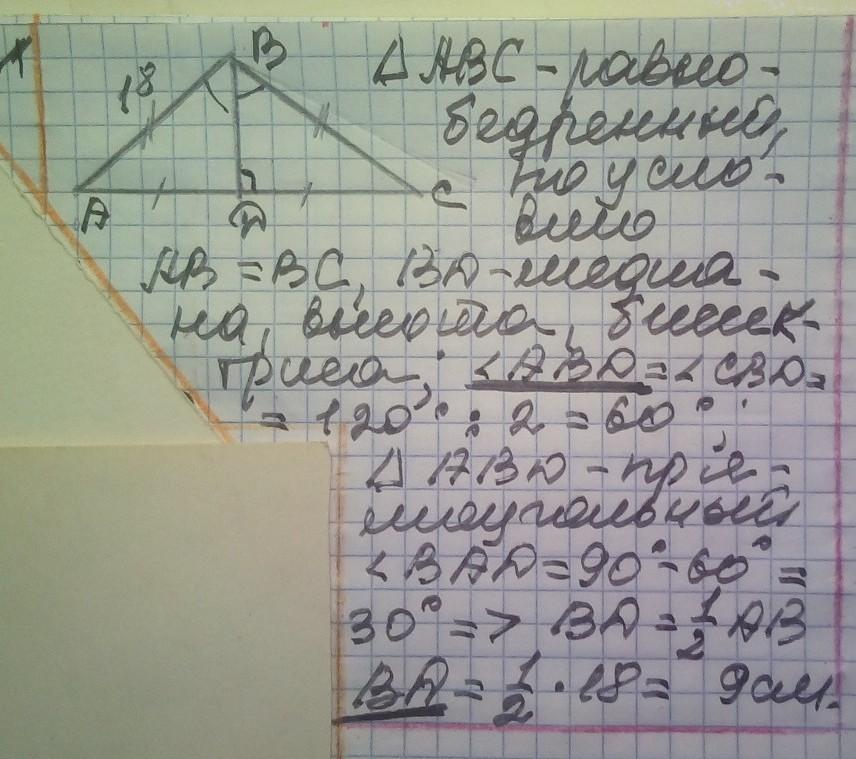 B
18
A
D
C
△ABC - равно-
бедренный,
по усло-
вию
AB = BC, BD - медиа-
на, высота, биссек-
триса; <ABD = <CBD =
= 120° : 2 = 60°;
△ ABD - пря-
моугольный
<BAD = 90° - 60° =
30° => BD = 1/2 AB
BD = 1/2 · 18 = 9 см.